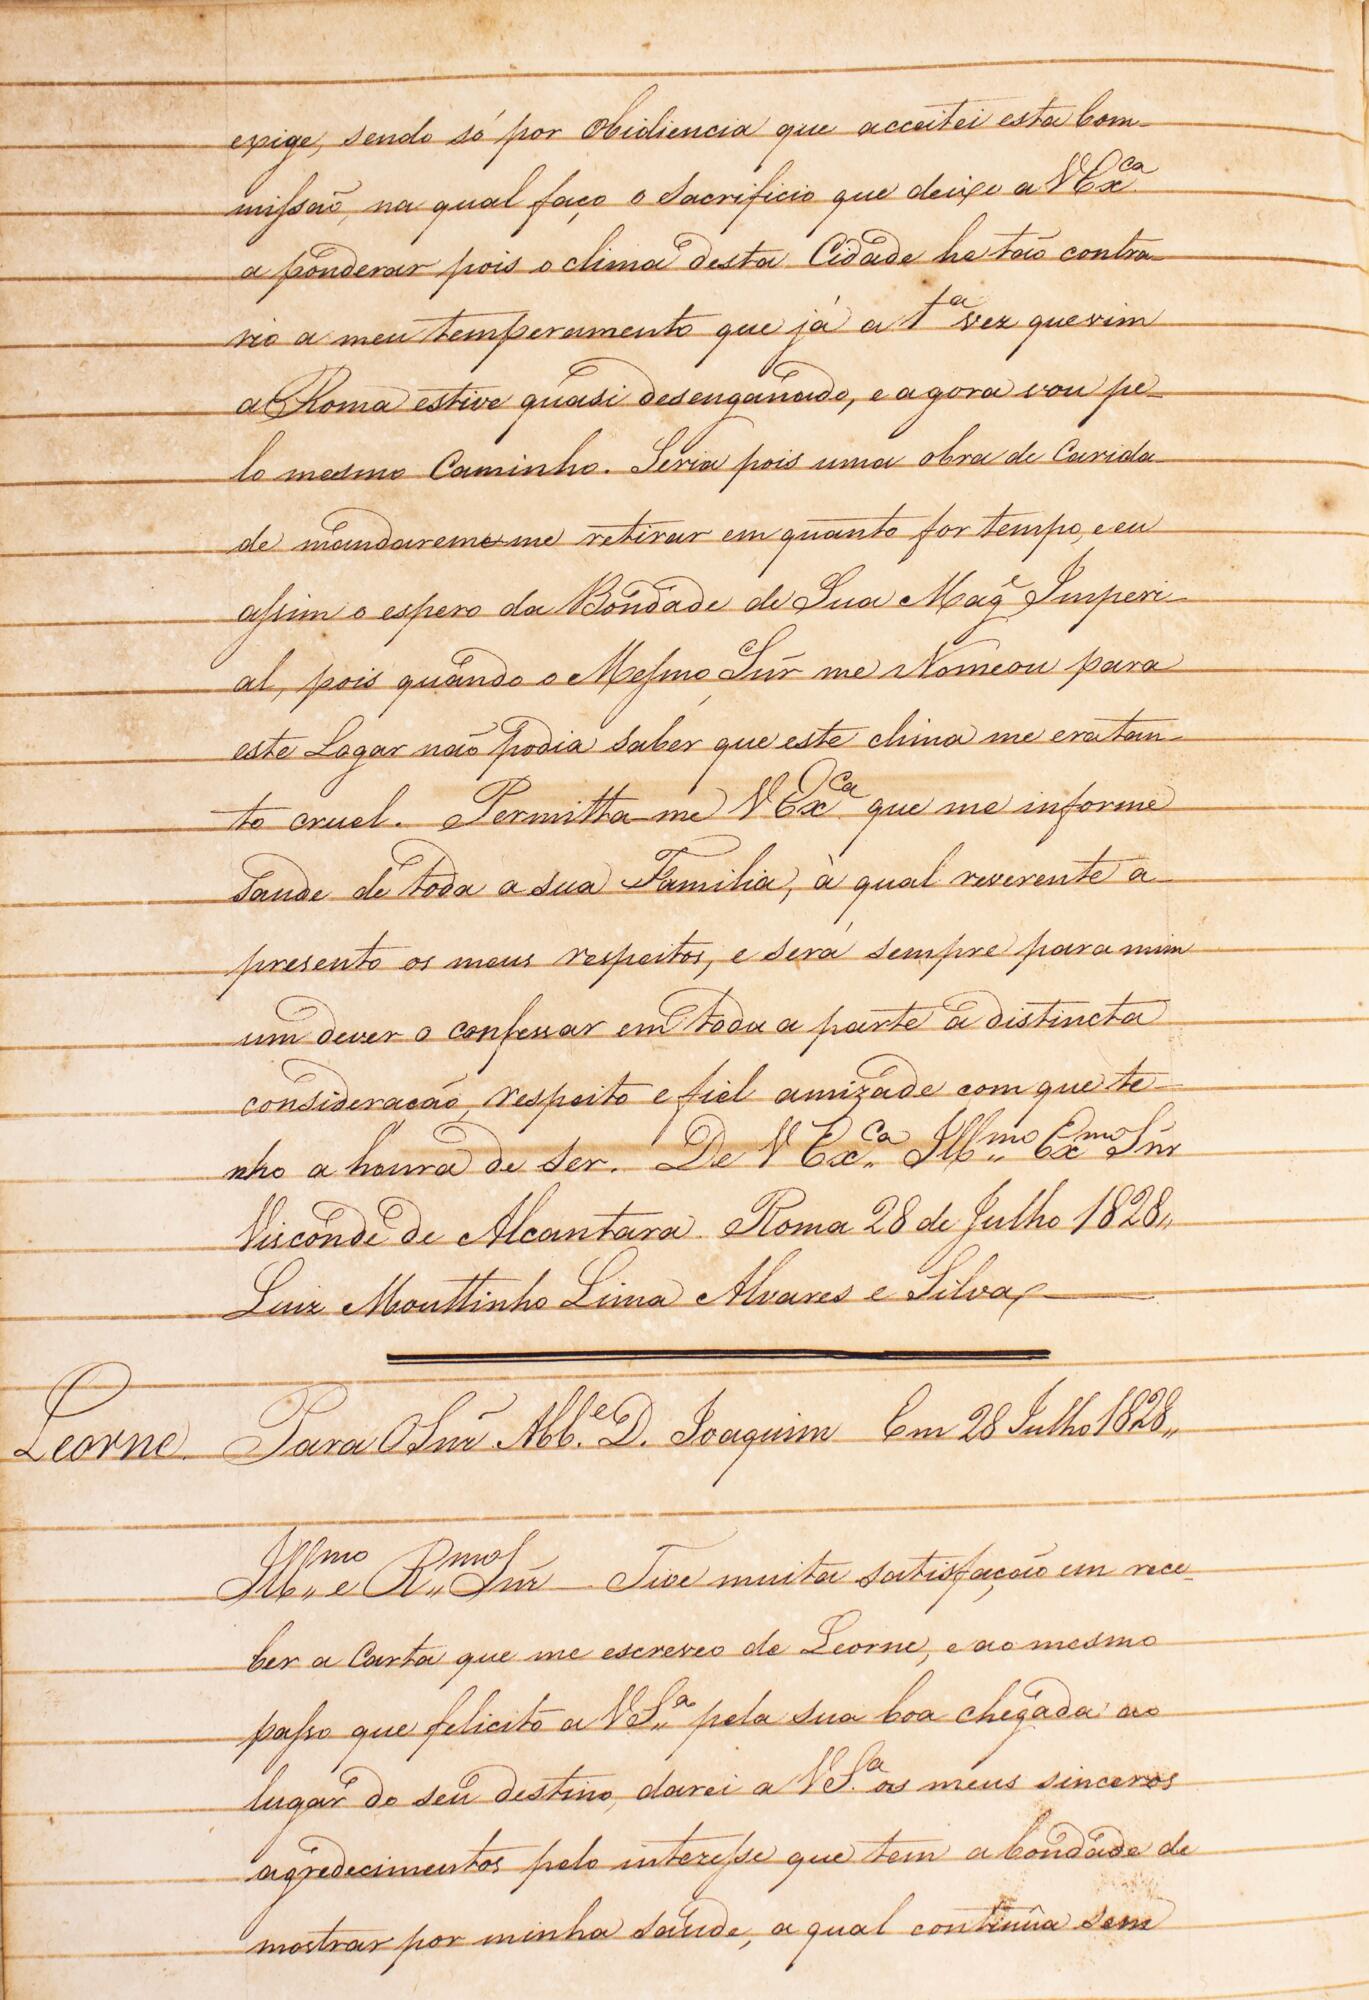 exige, sendo só por obidiencia que acceitei esta Com-
missão, na qual faço o Sacrificio que deixo a VEx.ca
a ponderar pois o clima desta Cidade he tão contra-
rio a meu temperamento que já a 1.a vez que vim
a Roma estive quasi desenganado, e agora vou pe-
lo mesmo Caminho. Seria pois uma obra de Carida-
de mandarem-me retirar em quanto for tempo, e eu
assim o espero da Bondade de Sua Mag.e Imperi-
al, pois quando o Mesmo Sñr me Nomeou para
este Lagar não podia saber que este clima me era tan-
to cruel. Permitta-me VEx.ca que me informe
saude de toda a sua Familia, à qual reverente a-
presento os meus respeitos, e será sempre para mim
um dever o confessar em toda a parte a distincta
consideracão, respeito e fiel amizade com que te-
nho a honra de ser. De V Ex.ca Ill.mo Ex.mo Sñr
Visconde de Alcantara. Roma 28 de Julho 1828,,
Luiz Mouttinho Lima Alvares e Silva
Leorne. Para O Sñr Abb.e D. Joaquim Em 28 Julho 1828,,
Ill.mo e R.mo Sñr - Tive muita satisfação em rece-
ber a Carta que me escreveo de Leorne, e ao mesmo
passo que felicito a VS.a pela sua boa chegada ao
lugar do seu destino, darei a VS.a os meus sinceros
agredecimentos pelo interesse que tem a bondade de
mostrar por minha saude, a qual continûa sem